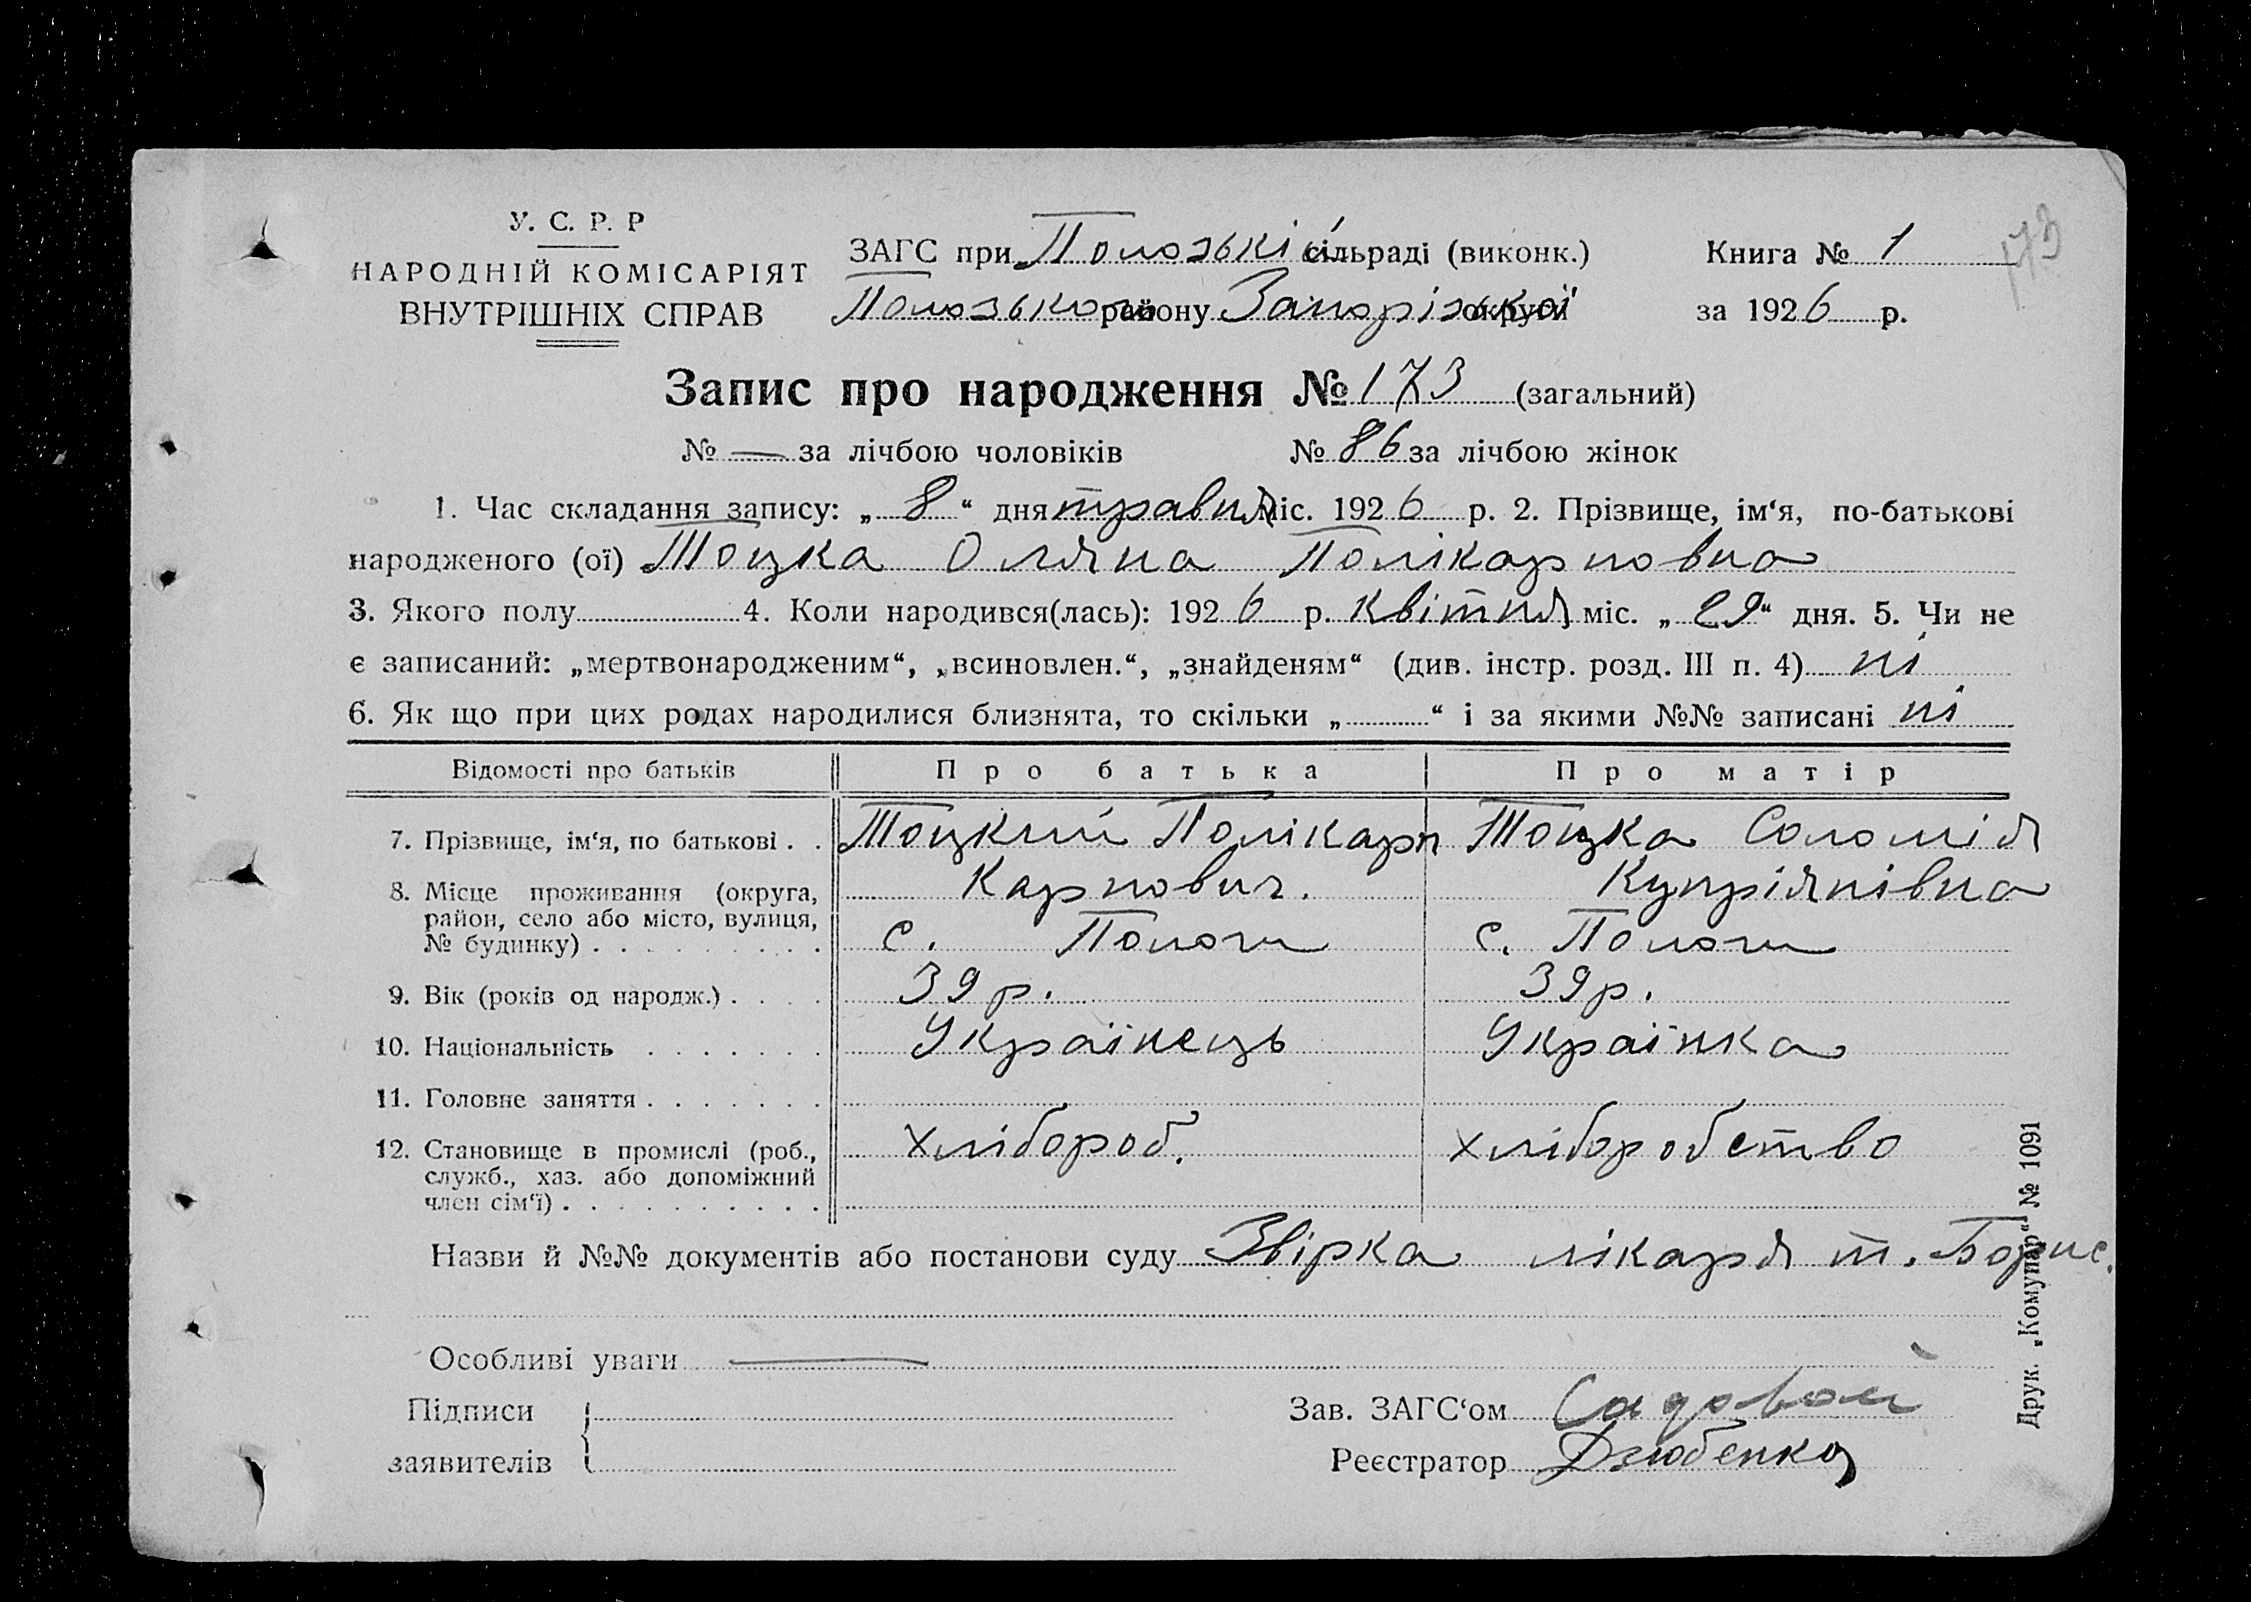 У. С. Р. Р
НАРОДНІЙ КОМІСАРІЯТ
ВНУТРІШНІХ СПРАВ
ЗАГС при Полозькій сільраді (виконк.)
Полозького району Запорізької округи
Книга № 1
за 1926 р.
173
Запис про народження № 173 (загальний)
№ — за лічбою чоловіків № 86 за лічбою жінок
1. Час складання запису: „ 8 “ дня травня міс. 1926 р. 2. Прізвище, ім‘я, по-батькові
народженого (ої) Тоцка Оляна Полікарповна
3. Якого полу 4. Коли народився(лась): 1926 р. Квітня міс. „ 29 “ дня. 5. Чи не
є записаний: „мертвонародженим“, „всиновлен.“, „знайденям“ (див. інстр. розд. III п. 4) ні
6. Як що при цих родах народилися близнята, то скільки „ “ і за якими №№ записані ні
Відомості про батьків Про батька Про матір
7. Прізвище, ім‘я, по батькові . . Тоцкий Полікарп Тоцка Соломія
Карпович. Купріянівна
8. Місце проживання (округа,
район, село або місто, вулиця,
№ будинку) . . . . . . . . . с. Пологи с. Пологи
9. Вік (років од народж.) . . . . 39 р. 39 р.
10. Національність . . . . . . . Українець Українка
11. Головне заняття . . . . . . .
12. Становище в промислі (роб., хлібороб. хліборобство
служб., хаз. або допоміжний
член сім‘ї) . . . . . . . . . .
Назви й №№ документів або постанови суду Звірка лікаря т. Борис.
Особливі уваги —
Підписи
заявителів
Зав. ЗАГС‘ом Садовой
Реєстратор Дзюбенко
Друк. „Комунар“ № 1091